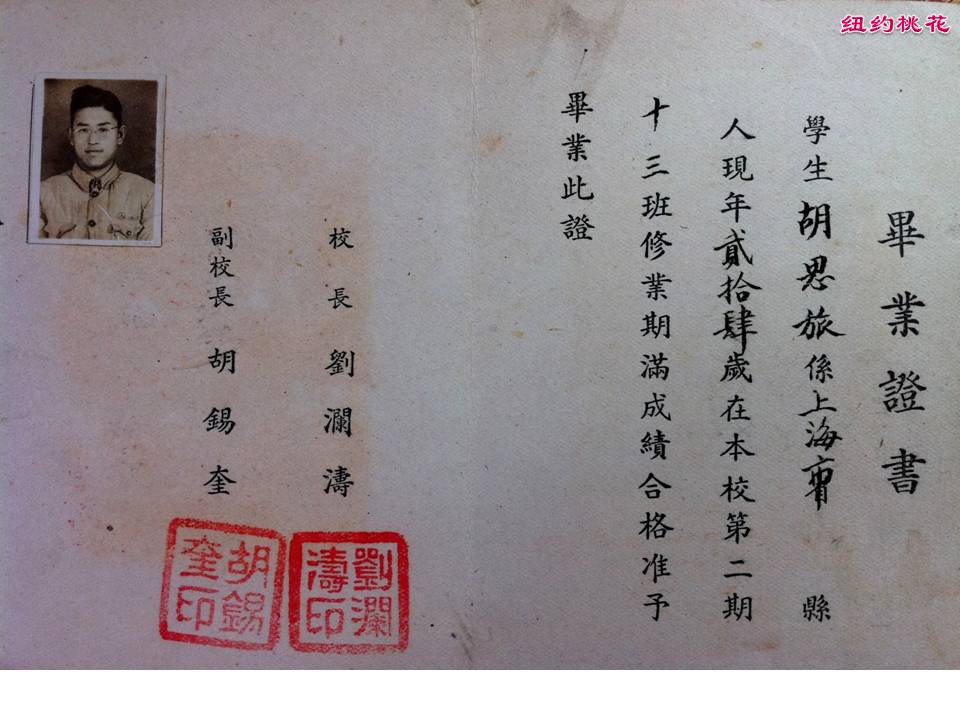 纽约桃花
畢業證書
學生胡思旅係上海市縣
人現年貳拾肆歲在本校第二期
十三班修業期滿成績合格准予
畢業此證
校長 劉瀾濤
副校長 胡錫奎
劉瀾濤印
胡錫奎印